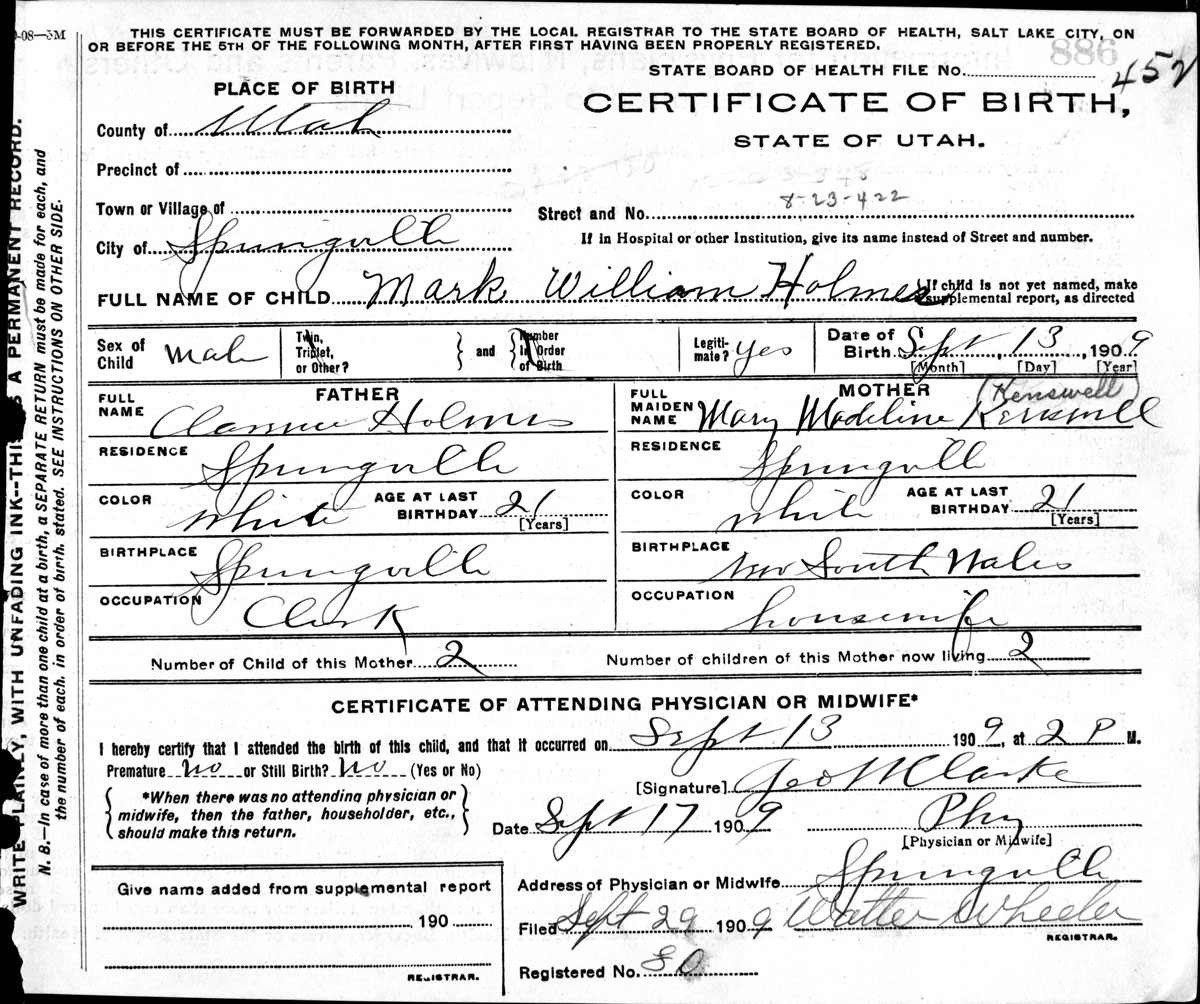 -08—3M
THIS CERTIFICATE MUST BE FORWARDED BY THE LOCAL REGISTRAR TO THE STATE BOARD OF HEALTH, SALT LAKE CITY, ON
OR BEFORE THE 5TH OF THE FOLLOWING MONTH, AFTER FIRST HAVING BEEN PROPERLY REGISTERED.
STATE BOARD OF HEALTH FILE No. 452
PLACE OF BIRTH
CERTIFICATE OF BIRTH,
STATE OF UTAH.
County of Utah
Precinct of
8-23-422
Town or Village of
Street and No.
City of Springville
If in Hospital or other Institution, give its name instead of Street and number.
FULL NAME OF CHILD Mark William Holmes
If child is not yet named, make
supplemental report, as directed
Sex of Child Male
Twin, Triplet, or Other? } and { Number In Order of Birth
Legiti-mate? yes
Date of Birth Sept, 13, 1909
[Month] [Day] [Year]
FATHER
FULL NAME Clarence Holmes
RESIDENCE Springville
COLOR White AGE AT LAST BIRTHDAY 21
[Years]
BIRTHPLACE Springville
OCCUPATION Clerk
MOTHER
Kenswell
FULL MAIDEN NAME Mary Madeline Kenswell
RESIDENCE Springville
COLOR White AGE AT LAST BIRTHDAY 21
[Years]
BIRTHPLACE New South Wales
OCCUPATION housewife
Number of Child of this Mother 2 Number of children of this Mother now living 2
CERTIFICATE OF ATTENDING PHYSICIAN OR MIDWIFE*
I hereby certify that I attended the birth of this child, and that it occurred on Sept 13 1909, at 2 P M.
Premature No or Still Birth? No (Yes or No)
[Signature] Geo Clarke
*When there was no attending physician or
midwife, then the father, householder, etc.,
should make this return.
Date Sept 17 1909 Phy
[Physician or Midwife]
Give name added from supplemental report
190
REGISTRAR.
Address of Physician or Midwife Springville
Filed Sept 29 1909 Walter Wheeler
REGISTRAR.
Registered No. 80
WRITE PLAINLY, WITH UNFADING INK--THIS IS A PERMANENT RECORD.
N. B.—In case of more than one child at a birth, a SEPARATE RETURN must be made for each, and
the number of each, in order of birth, stated. SEE INSTRUCTIONS ON OTHER SIDE.